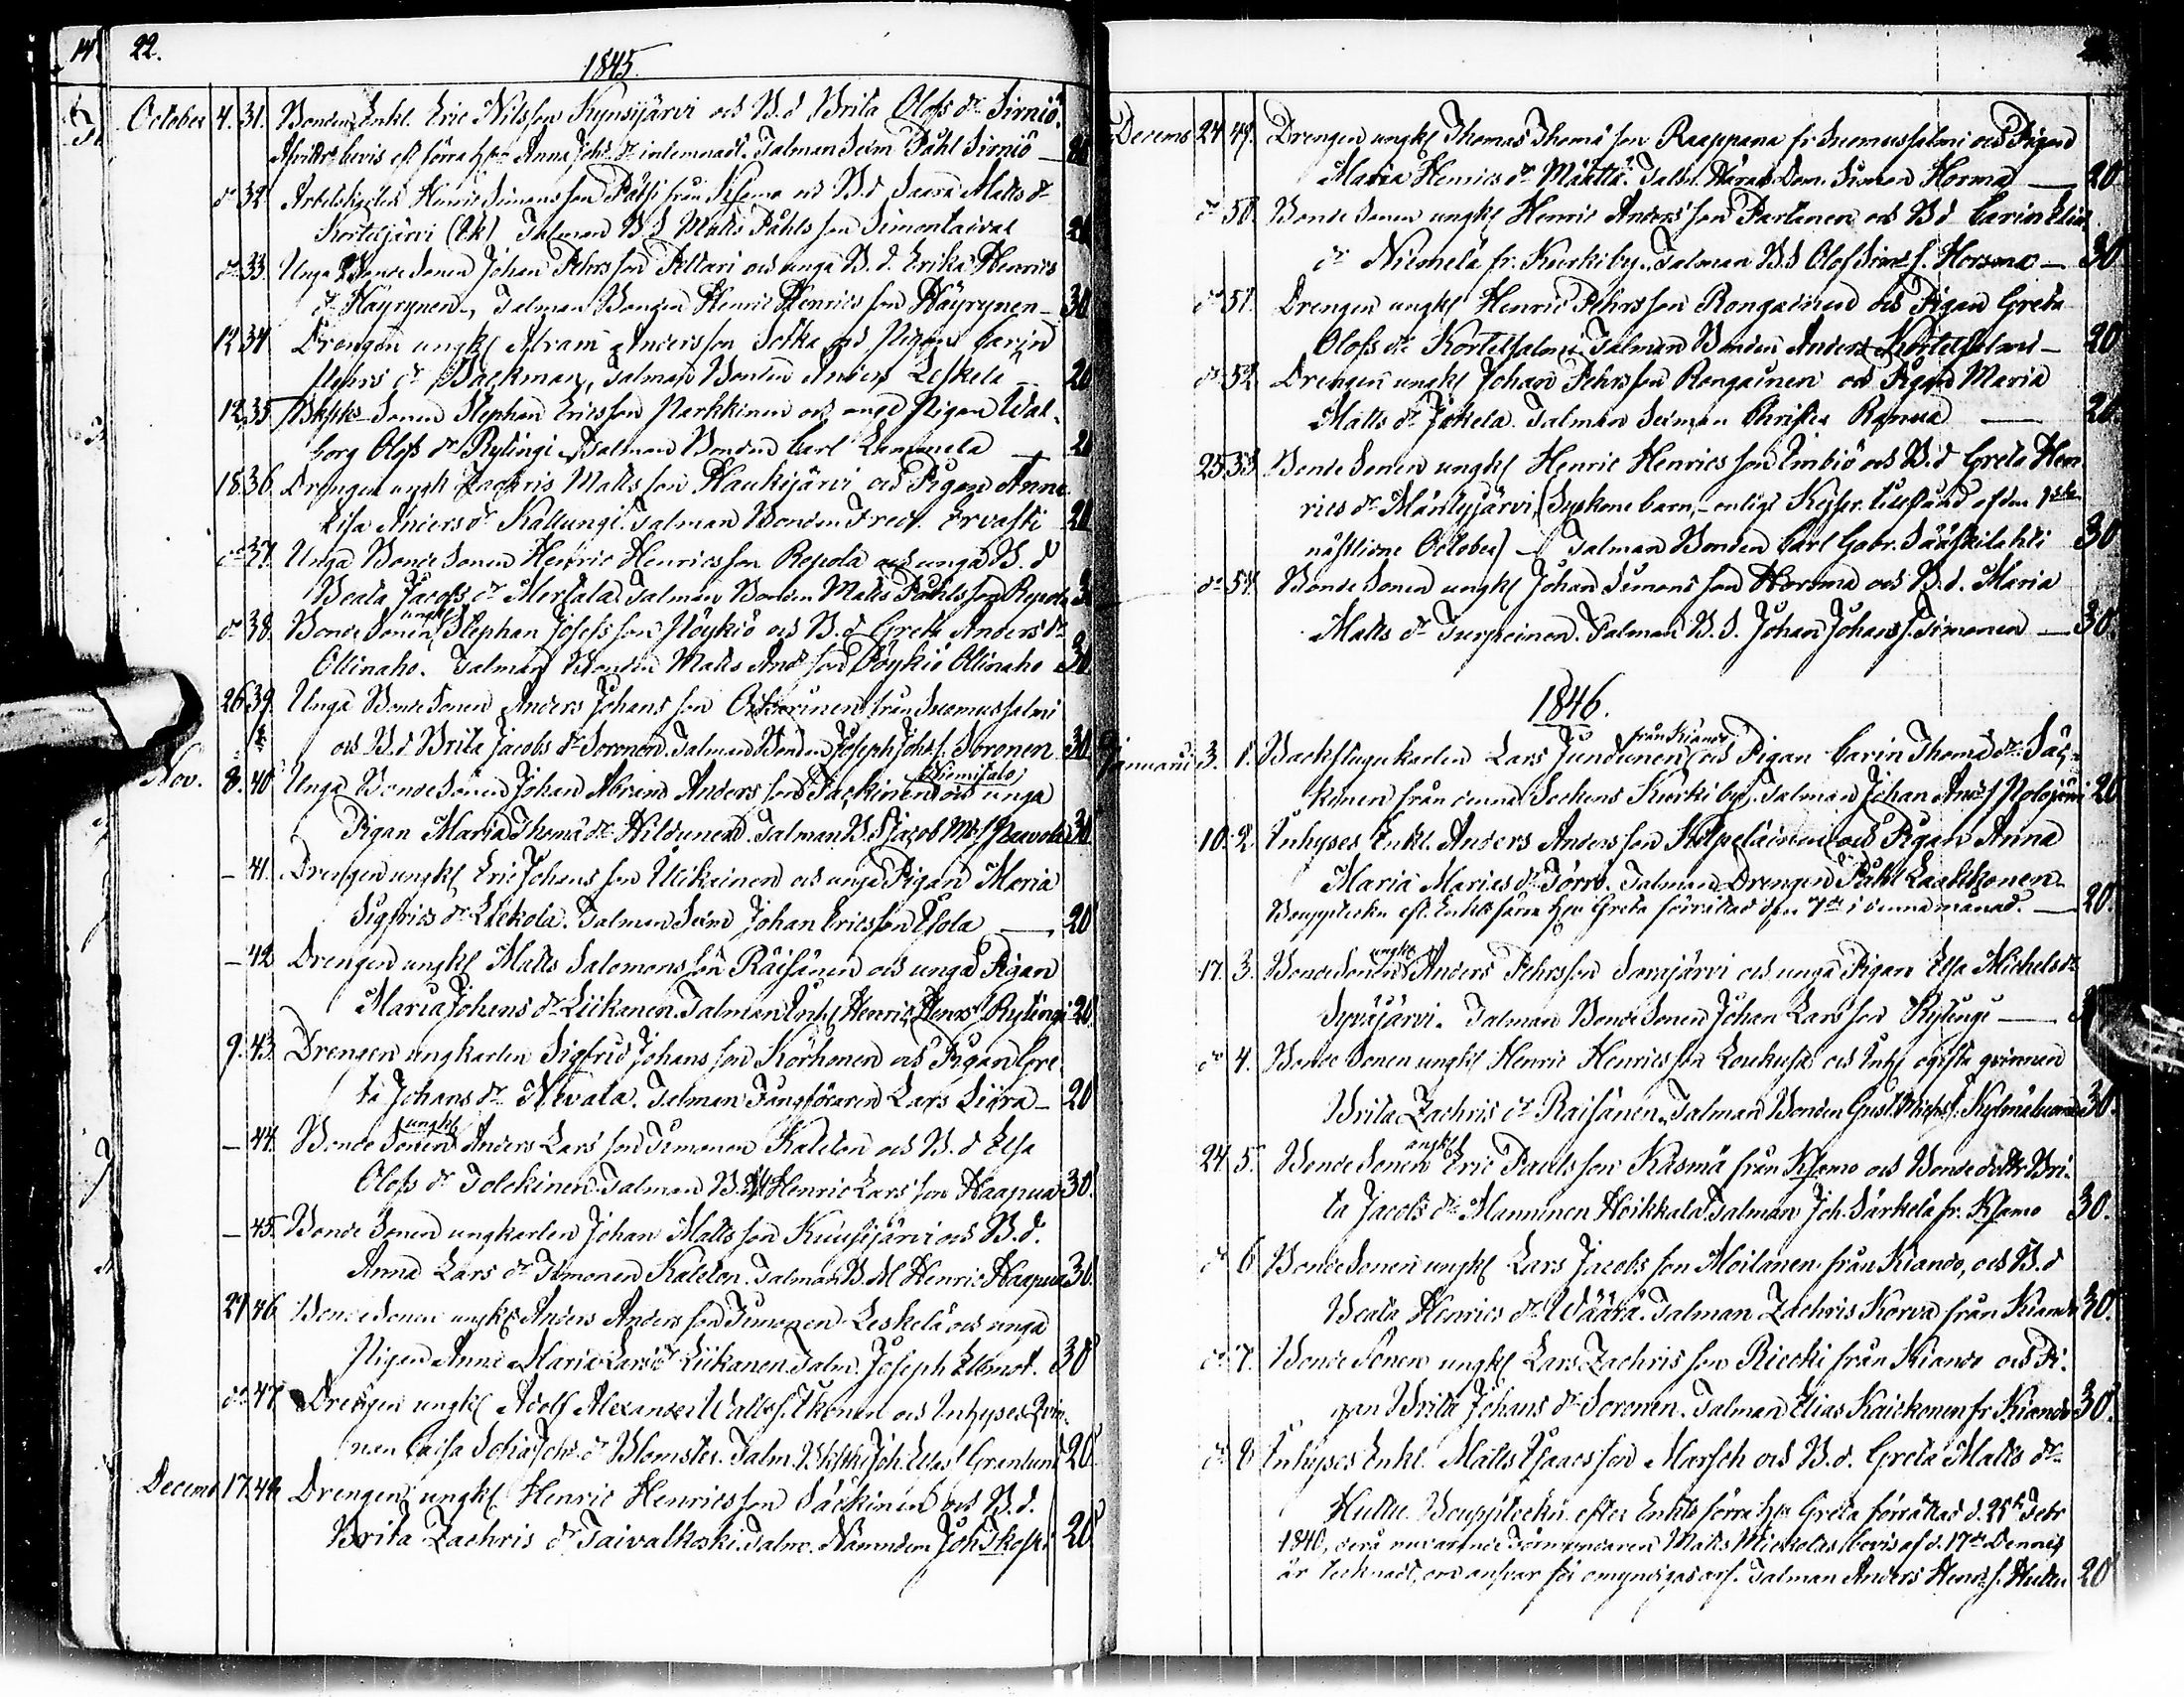 22.
1845.
October 4. 31. Bonden Enkl. Eric Nilsson Kynsijärvi och B.d Brita Olofs dr Sirniö.
Afvittr. bevis eft förra h:n Anna Johs dr inlemnadt. Talman Sexm Påhl Sirniö —
do 32. Arbetskarlen Henric Simonsson Pätsi från Kusamo och B.d Saara Matts dr
Korteljärvi (Enk) Talman B.S Matts Påhlsson Simontaival 20
do 33. Unga Bonde Sonen Johan Pehrsson Pellari och unga B.d. Erika Henrics
dr Häyrynen, Talman Bonden Henric Henricsson Häyrynen — 30
12 34 Drengen ungk Abram Andersson Sotka och Pigan Carin
dr Backman, Talman Bonden Anders Leskelä — 20
12 35 Sonen Stephan Ericsson Parkkinen och unga Pigan Wal-
borg Olofs dr Rytingi, Talman Bonden Carl Lammela — 20
18. 36. Drengen ungk Zachris Mattsson Haukijärvi och Pigan Anna
Lisa Anders dr Kallungi. Talman Bonden Fredr. Ervasti 20
do 37. Unga Bonde Sonen Henric Henricsson Repola och unga B.d
Beata Jacobs dr Mertala. Talman Bonden Matts Påhlsson Repola 30
do 38. Bonde Sonen ungk Stephan Josefsson Pöykiö och B.d Greta Anders dr
Ollinaho. Talman Bonden Matts Andsson Pöykiö Ollinaho 30.
26 39. Unga Bonde Sonen Anders Johansson från Suomussalmi
och B.d Brita Jacobs dr Soronen. Talman Bonden Joseph Johs s. Soronen 30
Nov. 8. 40 Unga Bonde Sonen Johan Abram Andersson Säckinen Niemitalo och unga
Pigan Maria Thoma dr Hildunen. Talman B.S Jacob Mts s Paavola 30.
— 41. Drengen ungk Eric Johansson Uikainen och unga Pigan Maria
Sigfrids dr Liekola. Talman Sexm Johan Ericsson Ylola — 20
— 42 Drengen ungk Matts Salomonsson Räisänen och unga Pigan
Maria Johans dr Liikanen. Talman Inh Henric Henrs s Rytingi 20.
9. 43. Drengen ungkarlen Sigfrid Johansson Korhonen och Pigan Gre
ta Johans dr Nevala. Talman Fångföraren Lars Siira — 20
— 44. Bonde Sonen ungk Anders Larsson Timonen Kaleton och B.d Elsa
Olofs dr Tolckinen. Talman B.M Henric Larsson Haapua 30.
— 45. Bonde Sonen ungkarlen Johan Mattsson Kuusijärvi och B.d.
Anna Lars dr Timonen Kaleton. Talman B.M Henric Haapua 30.
29 46 Bonde Sonen ungk Anders Andersson Timonen Leskelä och unga
Pigan Anna Maria Lars dr Liikanen. Talm. Joseph 30
do 47. Drengen ungk Adolf Alexander Ikonen och Inhyses Qvin-
nan Caisa Sofia Johs dr Blomster. Talm. Joh. Grönlund 20
Decemb 17. 48 Drengen ungk Henric Henricsson Säckinen och B.d.
Brita Zachris dr Taivalkoski. Talm. Nämndem. Joh. Iikoski 20
Decemb 24 49. Drengen ungk Thomas Thomasson Raappana fr Suomussalmi och Pigan
Maria Henrics dr Määttä. Talm. Härads Dom. Simon Horma — 20
do 50. Bonde Sonen ungk Henric Andersson Partanen och B.d Carin Elias
dr Niemelä fr. Kurkiby. Talman B.S Olof Sim s. Horsma — 30
do 51. Drengen ungk Henric Pehrsson Rongainen och Pigan Greta
Olofs dr Kortetsalmi. Talman Bonden Anders Kortetsalmi — 20
do 52. Drengen ungk Johan Pehrsson Rongainen och Pigan Maria
Matts dr Jokela. Talman Sexman Christer Ranua — 20.
25. 53. Bonde Sonen ungk Henric Henricsson Timbiö och B.d Greta Hen
rics dr Mäntyjärvi, (Syskone barn, enligt Kejser. tillstånd af den 1sta
nästledne October) — Talman Bonden Carl Gabr. Sääskilahti 30
do 54. Bonde Sonen ungk Johan Simonsson Horsma och B.d. Maria
Matts dr Turpeinen. Talman B.S. Johan Johans s. Timonen — 30.
1846.
Januari 3. 1. Backstugukarlen Lars Jundunen från Kianto och Pigan Carin Thoma dr Säc-
kinen från denna Sockens Kurki by. Talman Johan Ands s Polojärvi 20
10. 2. Inhyses Enkl. Anders Andersson Kilpeläinen och Pigan Anna
Maria Marias dr Törrö. Talman Drengen Påhl Laakkonen.
Bouppteckn eft. Enkls förra h:u Greta förrättad den 7de i denna månad. — 20.
17. 3. Bonde Sonen ungk Anders Pehrsson Somjärvi och unga Pigan Elsa Michels dr
Syväjärvi. Talman Bonde Sonen Johan Larsson Rytingi — 30
do 4. Bonde Sonen ungk Henric Henricsson Loukusa och Inh ogifta qvinnan
Brita Zachris dr Räisänen. Talman Bonden Gust. Michs s. Kylmäluoma 30.
24 5. Bonde Sonen ungk Eric Paulsson Käsmä från Kusamo och Bonde dottr Bri-
ta Jacobs dr Manninen Hoikkala. Talman Joh. Särkelä fr. Kusamo 30.
do 6 Bonde Sonen ungk Lars Jacobsson Moilanen från Kianto, och B.d
Beata Henrics dr Wäärä. Talman Zachris Korva från Kianto 30.
do 7. Bonde Sonen ungk Lars Zachrisson Riecki från Kianto och Pi-
gan Brita Johans dr Soronen. Talman Elias Kaickonen fr Kianto 30.
do 8 Inhyses Enkl. Matts Isaacsson Marsch och B.d. Greta Matts dr
Huttu. Boupptecktn. efter Enkls förra h:u Greta förrättad d. 25te Febr
1840, derå nuvarande Förmyndaren Matts Mickolas bevis af d. 17de Dennes
är tecknadt, om ansvar för omyndigas arf. Talman Anders Henrs s. Huttu 20